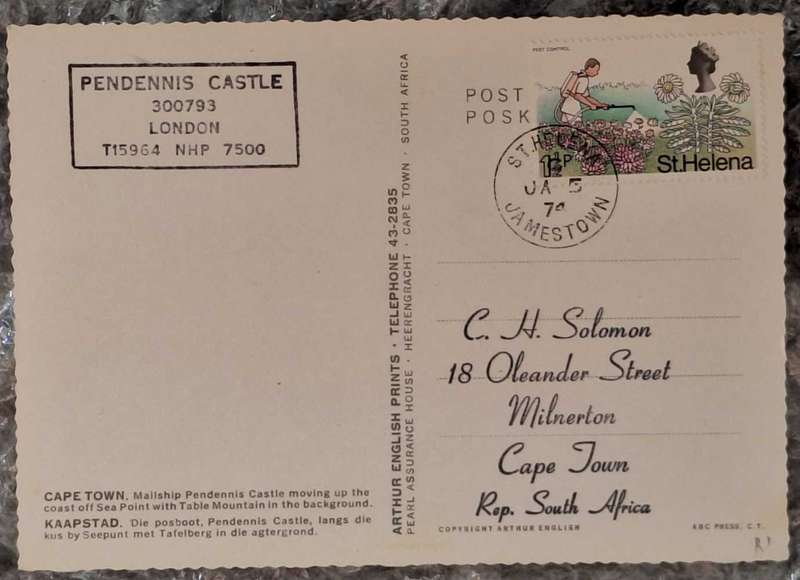 PENDENNIS CASTLE
300793
LONDON
T15964 NHP 7500
CAPE TOWN. Mailship Pendennis Castle moving up the
coast off Sea Point with Table Mountain in the background.
KAAPSTAD. Die posboot, Pendennis Castle, langs die
kus by Seepunt met Tafelberg in die agtergrond.
ARTHUR ENGLISH PRINTS · TELEPHONE 43-2835
PEARL ASSURANCE HOUSE · HEERENGRACHT · CAPE TOWN · SOUTH AFRICA
POST
POSK
PEST CONTROL
St.Helena
ST. HELENA
JA 5
JAMESTOWN
C. H. Solomon
18 Oleander Street
Milnerton
Cape Town
Rep. South Africa
COPYRIGHT ARTHUR ENGLISH
ABC PRESS, C.T.